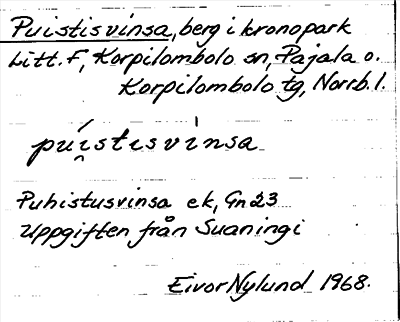 Puistisvinsa, berg i kronopark
Litt. F, Korpilombolo sn, Pajala o.
Korpilombolo tg, Norrb. l.
pui̯stisvinsa
Puhistusvinsa ek, Gn23
Uppgiften från Suaningi
Eivor Nylund 1968.